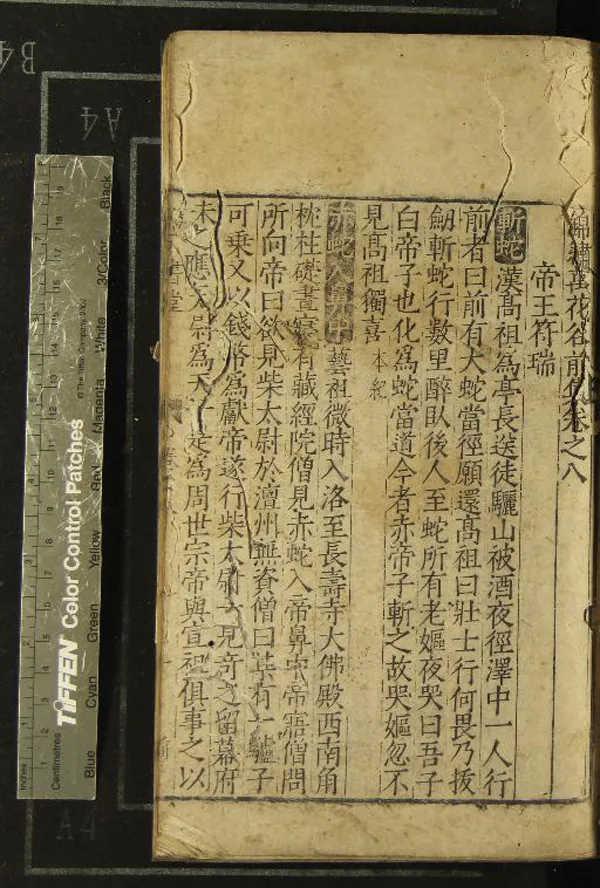 錦繡萬花谷前集卷之八
帝王符瑞
斬蛇 漢髙祖為亭長送徒驪山被酒夜徑澤中一人行
前者曰前有大蛇當徑願還髙祖曰壯士行何畏乃拔
劒斬蛇行數里醉臥後人至蛇所有老嫗夜哭曰吾子
白帝子也化為蛇當道今者赤帝子斬之故哭嫗忽不
見髙祖獨喜 本紀
赤蛇入鼻中 藝祖微時入洛至長壽寺大佛殿西南角
枕柱礎晝寢有藏經院僧見赤蛇入帝鼻中帝寤僧問
所向帝曰欲見柴太尉於澶州無資僧曰某有一驢子
可乘又以錢幣為獻帝遂行柴太尉一見竒之留幕府
未之應太尉為天是為周世宗帝與宣祖俱事之以
書堂
TIFFEN Color Control Patches
© The Tiffen Company, 2000
Inches
Centimetres
Blue Cyan Green Yellow Red Magenta White 3/Color Black
A4
B4
A4